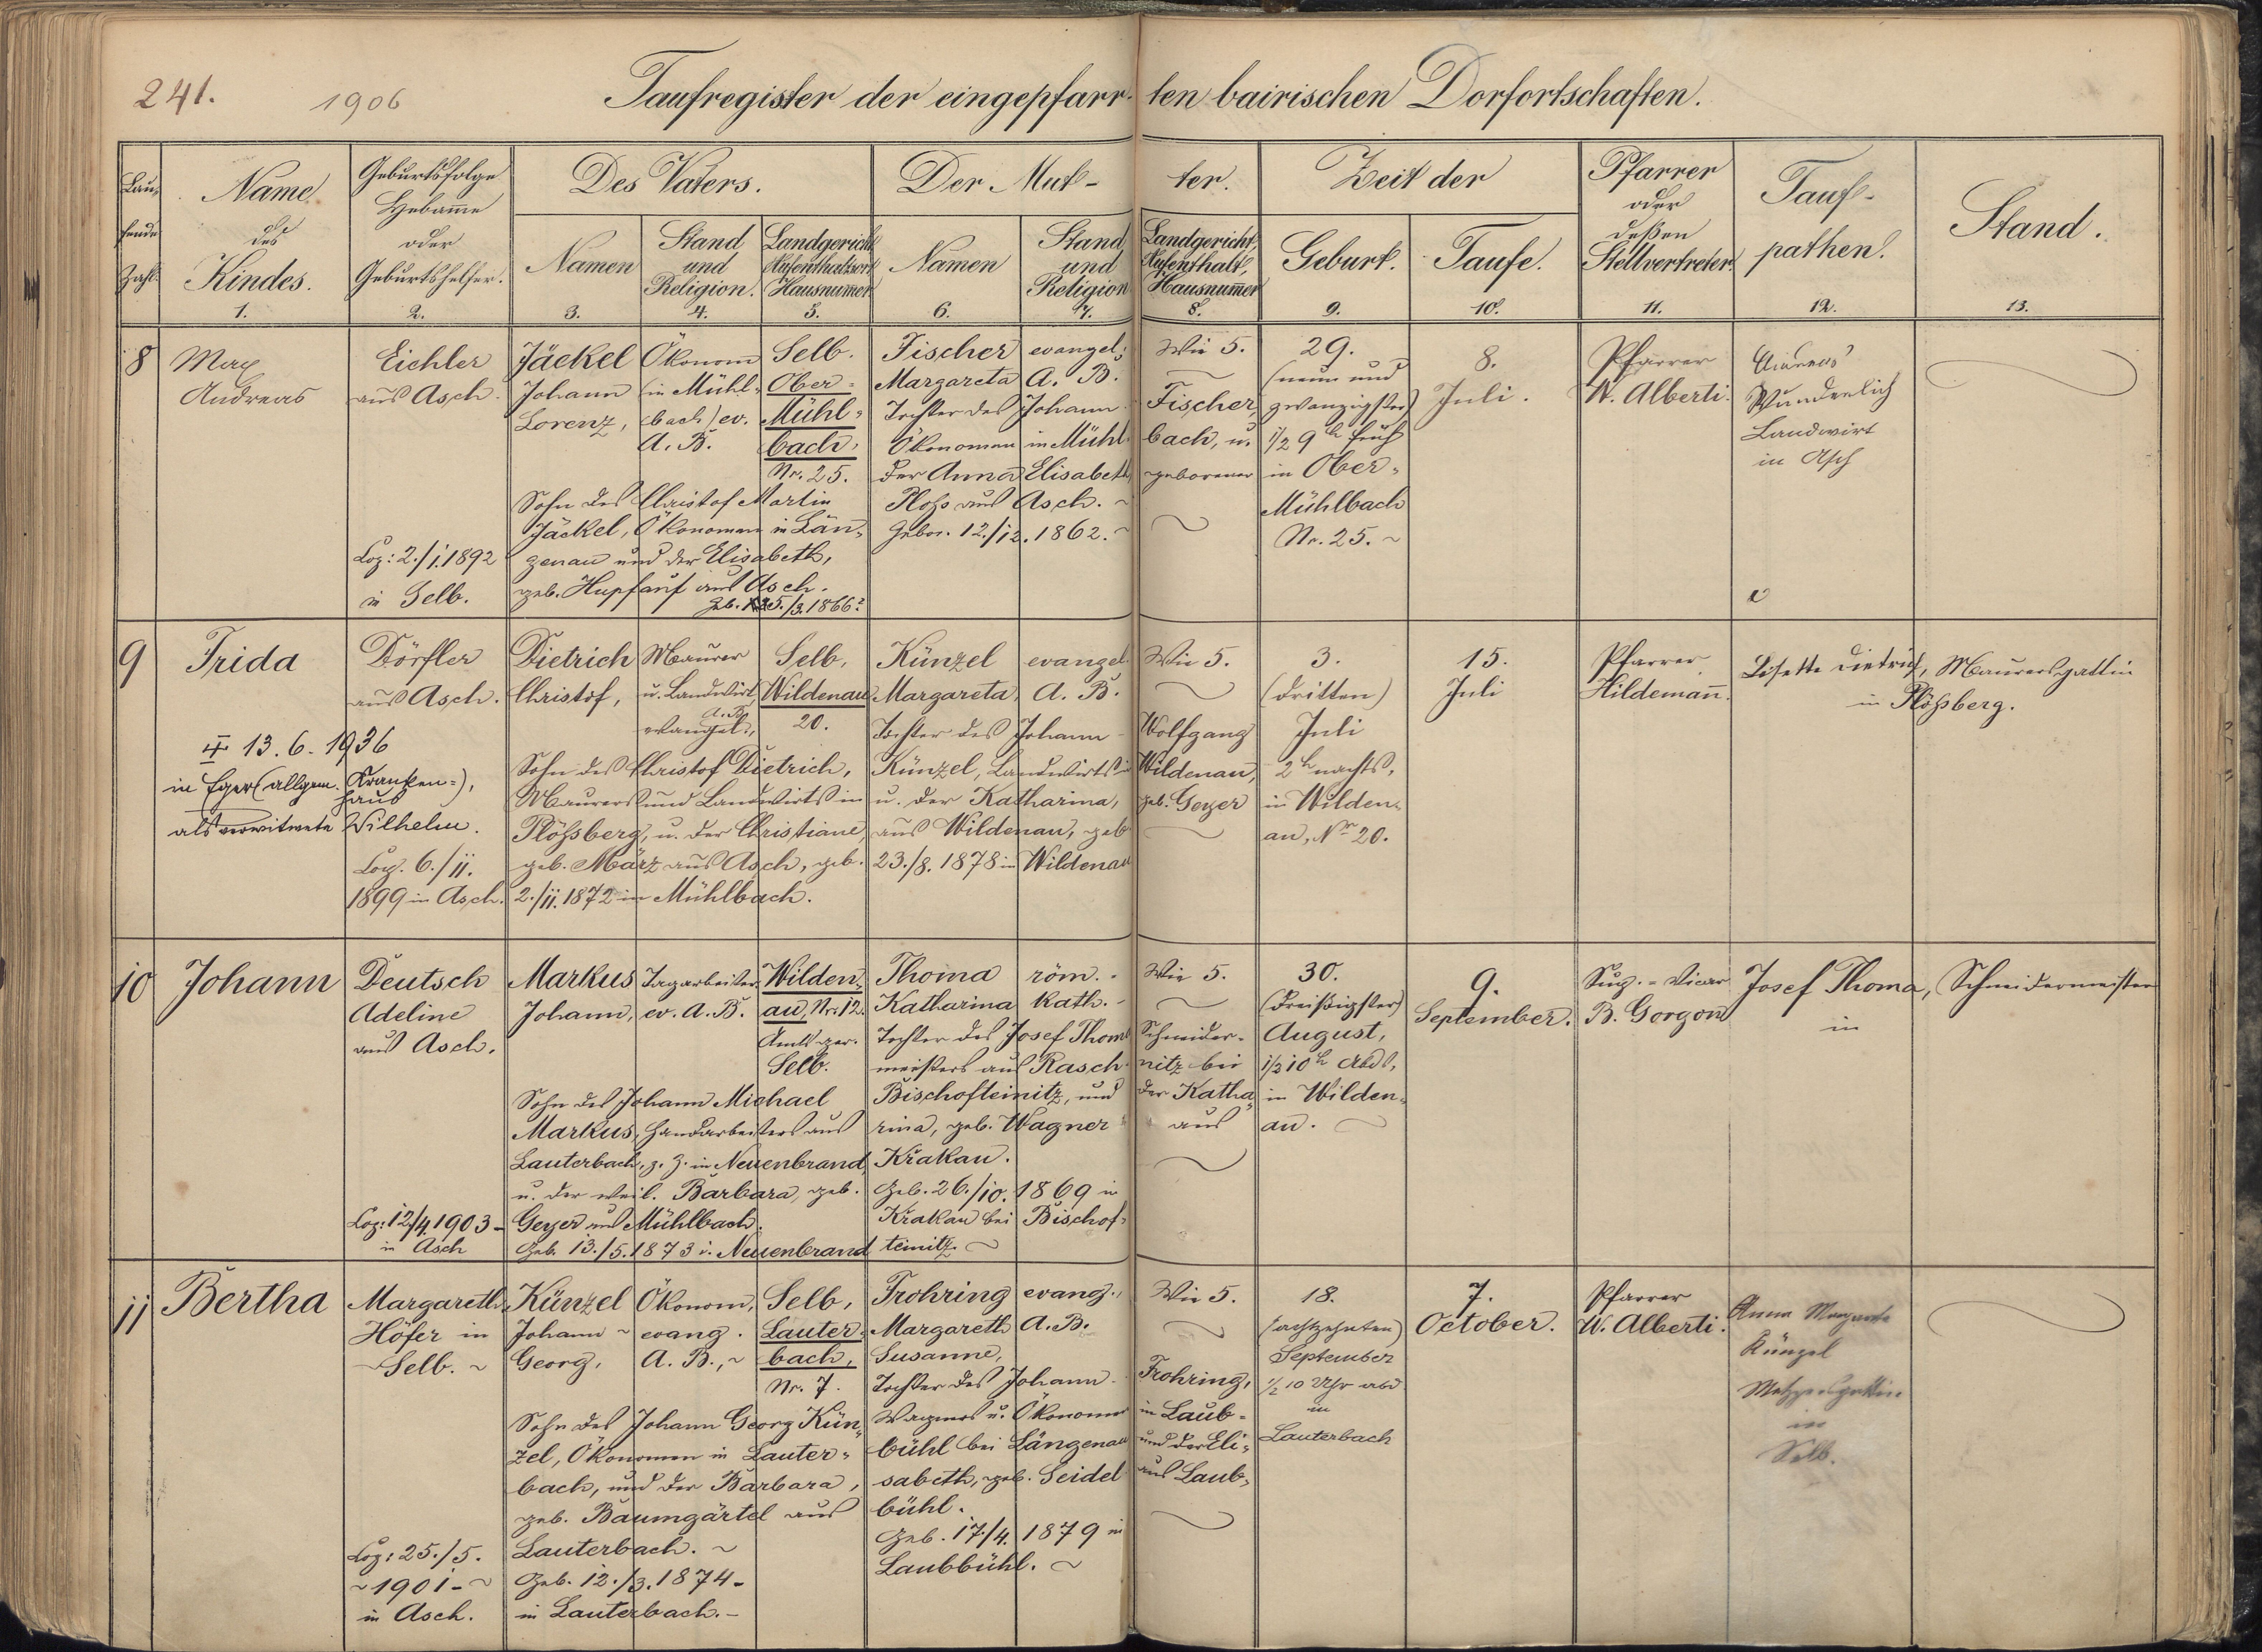 241.
1906
Taufregister der eingepfarr-ten bairischen Dorfortschaften.
Lau-
fende
Zahl.
Name
des
Kindes.
1.
Geburtsfolge
Hebam̅e
oder
Geburtshelfer.
2.
Des Vaters.
Namen
3.
Stand
und
Religion.
4.
Landgericht
Aufenthaltsort
Hausnum̅er
5.
Der Mut-ter.
Namen
6.
Stand
und
Religion
7.
Landgericht,
Aufenthalt,
Hausnum̅er
8.
Zeit der
Geburt.
9.
Taufe.
10.
Pfarrer
oder
deßen
Stellvertreter.
11.
Tauf-
pathen.
12.
Stand.
13.
8
Max
Andreas
Eichler
aus Asch.
Cop: 2./1.1892
in Selb.
Jäckel
Johann
Lorenz,
Ökonom
(in Mühl-
bach) ev.
A. B.
Selb.
Ober-
Mühl-
bach,
Nr. 25.
Sohn des Christof Martin
Jäckel, Ökonomen in Län-
genau und der Elisabeth,
geb. Hupfauf aus Asch.
geb. 5./3.1866.
Fischer
Margareta
evangel.
A. B.
Wie 5.
Tochter des Johann Fischer,
Ökonomen in Mühlbach, u.
der Anna Elisabeth geborener
Ploß aus Asch.
Gebor. 12./12.1862.
29.
(neun und
zwanzigster)
1/2 9 h früh
in Ober-
Mühlbach
Nr. 25.
8.
Juli.
Pfarrer
W. Alberti.
Andreas
Wunderlich
Landwirt
in Asch
9
Frida
13.6.1936
in Eger (allgem. Kranken=),
haus
als verwitwete Wilhelm.
Dörfler
aus Asch.
Cop. 6./11.
1899 in Asch.
Dietrich
Christof,
Maurer
u. Landwirt,
A. B.
evangel.,
Selb,
Wildenau
20.
Sohn des Christof Dietrich,
Maurers und Landwirts in
Plößberg, u. der Christiane,
geb. März aus Asch, geb.
2./11.1872 in Mühlbach.
Künzel
Margareta,
evangel.
A. B.
Wie 5.
Tochter des Johann Wolfgang
Künzel, Landwirts in Wildenau,
u. der Katharina, geb. Geyer
aus Wildenau, geb
23./8.1878 in Wildenau
3.
(dritten)
Juli
2 h nachts,
in Wilden-
au, Nr 20.
15.
Juli
Pfarrer
Hildeman̅.
Lisette Dietrich, Maurersgattin
in Plößberg.
10
Johann
Deutsch
Adeline
aus Asch.
Cop: 12/4 1903-
in Asch
Markus
Johann,
Tagarbeiter,
ev. A. B.
Wilden-
au, Nr. 12.
Amtsger.
Selb.
Sohn des Johann Michael
Markus, Handarbeiters aus
Lauterbach, z. Z. in Neuenbrand,
u. der weil. Barbara, geb.
Geyer aus Mühlbach.
Geb. 13./5.1873 i. Neuenbrand
Thoma
Katharina
röm.-
kath.-
Wie 5.
Tochter des Josef Thoma Schneider-
meisters aus Raschnitz bei
Bischofteinitz, und der Katha-
rina, geb. Wagner aus
Křakau.
Geb. 26./10. 1869 in
Křakau bei Bischof-
teinitz
30.
(dreißigster)
August,
1/2 10 h Abds,
in Wilden-
au.
9.
September.
B. Gorgon
Josef Thoma, Schneidermeister
in
11
Bertha
Margareth
Höfer in
Selb.
Cop: 25./5.
1901-
in Asch.
Künzel
Johann
Georg,
Ökonom,
evang.
A. B.,
Selb,
Lauter-
bach,
Nr. 7.
Sohn des Johann Georg Kün-
zel, Ökonomen in Lauter-
bach, und der Barbara,
geb. Baumgärtel aus
Lauterbach.
Geb. 12./3.1874-
in Lauterbach.-
Frohring
Margareth
Susanne,
evang.,
A. B.
Wie 5.
Tochter des Johann Frohring,
Wagners u. Ökonomen in Laub-
bühl bei Längenau und der Eli-
sabeth, geb. Seidel aus Laub-
bühl.
Geb. 17./4. 1879 in
Laubbühl.
18.
(achtzehnten)
September
1/2 10 Uhr abd
in
Lauterbach
7.
October.
Pfarrer
W. Alberti.
Anna Margareta
Künzel
Metzgersgattin
in
Selb.